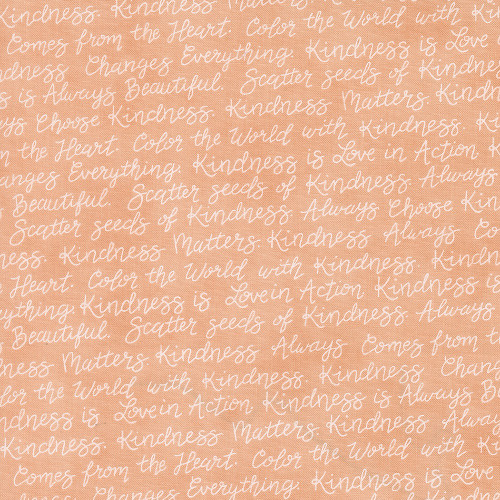 Kindness. Color the World with Kindness
Comes from the Heart. Color the World with Kind
Kindness Changes Everything. Kindness is Love
is Always Beautiful. Scatter seeds of Kindness
Always Choose Kindness. Kindness Matters. Kindness
from the Heart. Color the World with Kindness. K
Changes Everything. Kindness is Love in Action K
Beautiful. Scatter seeds of Kindness. Always
Scatter seeds of Kindness. Always Choose Kin
ness. Kindness Matters. Kindness Always C
Heart. Color the World with Kindness. Kindness
Everything. Kindness is Love in Action Kindness is
Beautiful. Scatter seeds of Kindness. Always
Kindness Matters. Kindness Always Comes from t
Color the World with Kindness. Kindness Chang
Kindness is Love in Action Kindness is Always B
Kindness. Kindness Matters. Kindness Always
Comes from the Heart. Color the World with K
Changes Everything. Kindness is Love